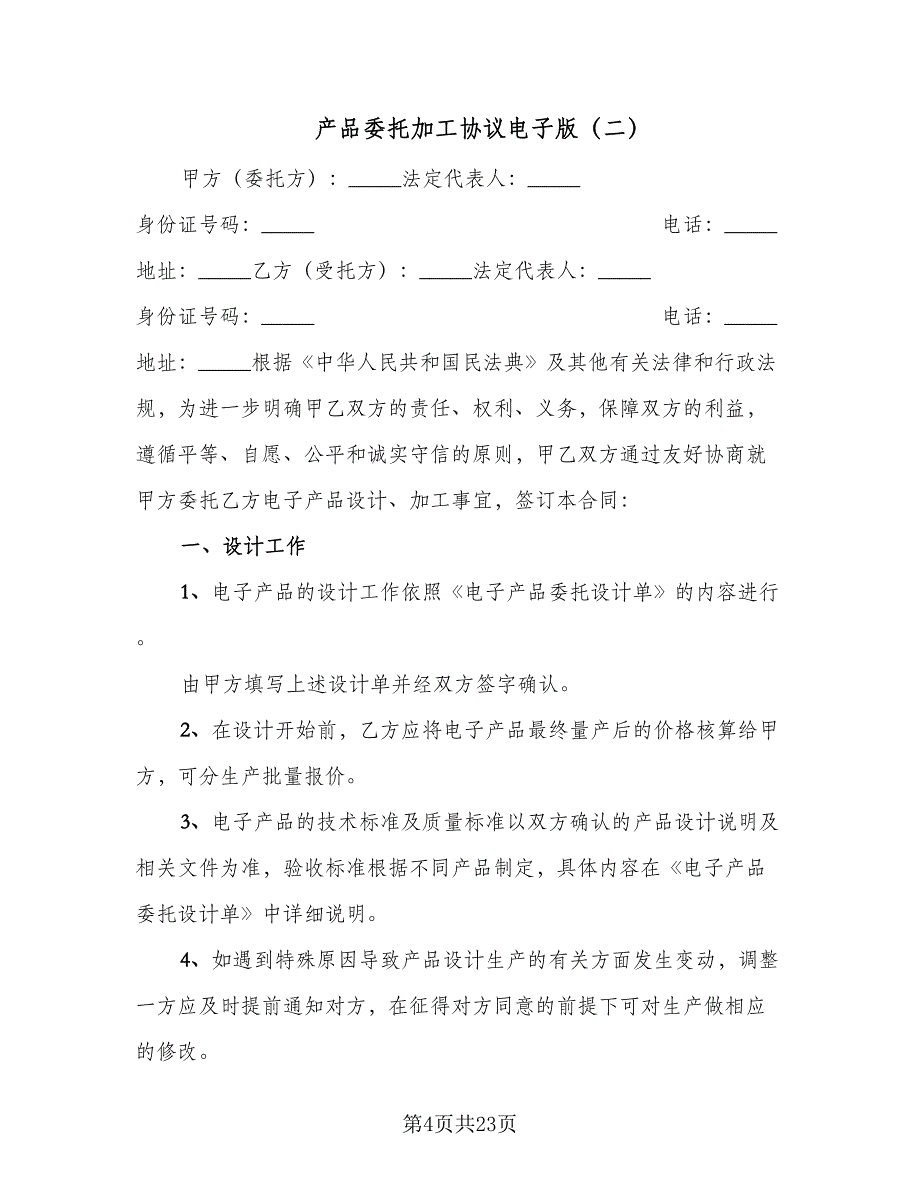 产品委托加工协议电子版（二）
甲方（委托方）：_____法定代表人：_____
身份证号码：_____ 电话：_____
地址：_____乙方（受托方）：_____法定代表人：_____
身份证号码：_____ 电话：_____
地址：_____根据《中华人民共和国民法典》及其他有关法律和行政法
规，为进一步明确甲乙双方的责任、权利、义务，保障双方的利益，
遵循平等、自愿、公平和诚实守信的原则，甲乙双方通过友好协商就
甲方委托乙方电子产品设计、加工事宜，签订本合同：
一、设计工作
1、电子产品的设计工作依照《电子产品委托设计单》的内容进行
。
由甲方填写上述设计单并经双方签字确认。
2、在设计开始前，乙方应将电子产品最终量产后的价格核算给甲
方，可分生产批量报价。
3、电子产品的技术标准及质量标准以双方确认的产品设计说明及
相关文件为准，验收标准根据不同产品制定，具体内容在《电子产品
委托设计单》中详细说明。
4、如遇到特殊原因导致产品设计生产的有关方面发生变动，调整
一方应及时提前通知对方，在征得对方同意的前提下可对生产做相应
的修改。
第4页共23页